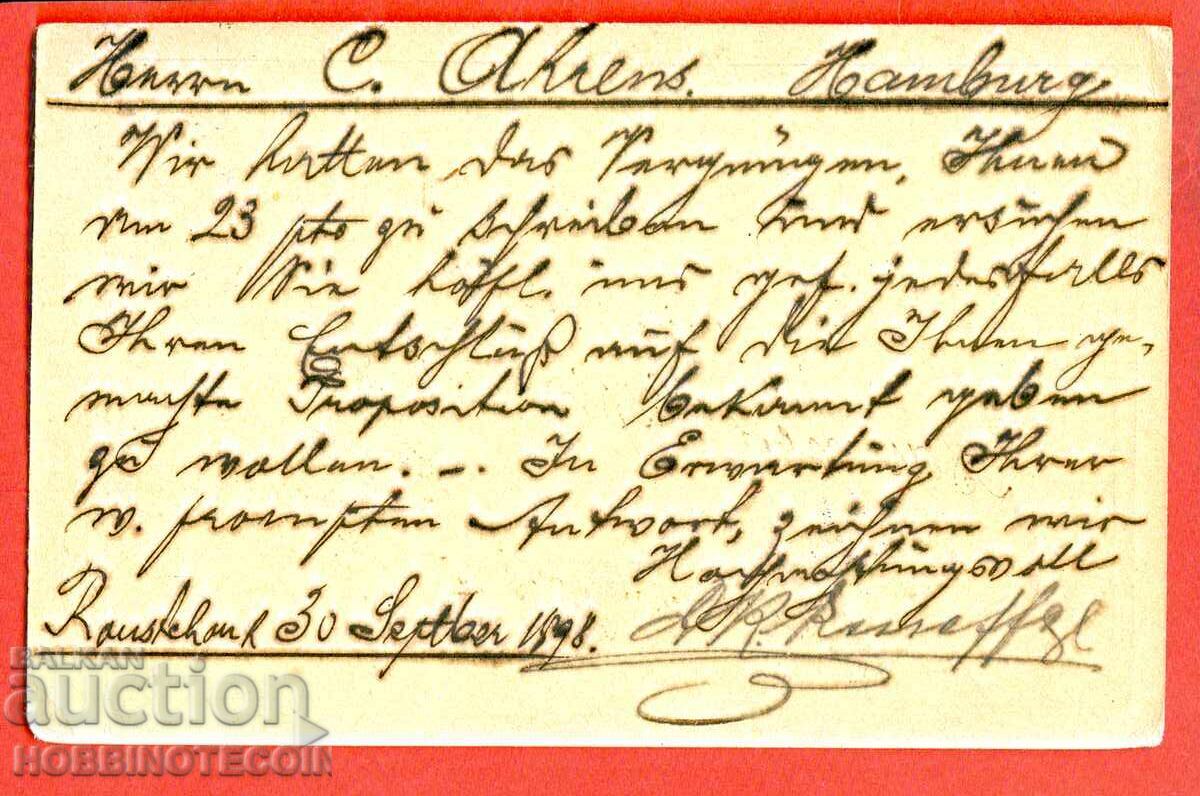 Herrn C. Ahrens. Hamburg
Wir hatten das Vergnügen, Ihnen
am 23 pto zu schreiben und ersuchen
wir Sie höfl. uns gef. jedesfalls
Ihren Entschluß auf die Ihnen ge-
machte Proposition bekannt geben
zu wollen. — . In Erwartung Ihrer
w. prompten Antwort, zeichnen wir
Hochachtungsvoll
Roustchouk 30 Septber 1898.
BALKAN
auction
HOBBINOTECOIN